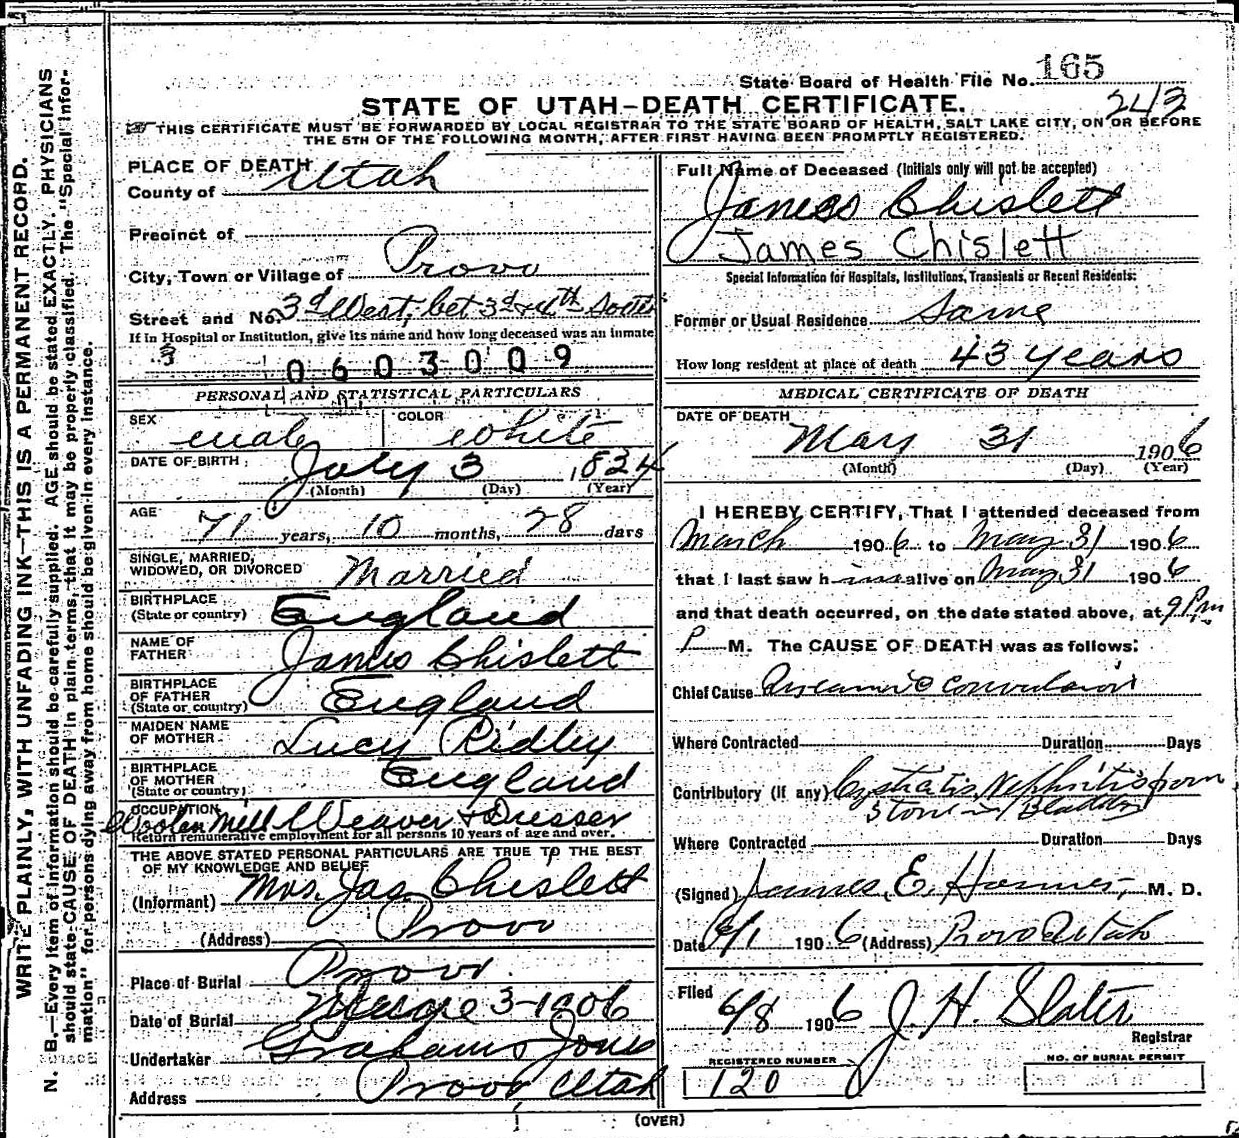 State Board of Health File No. 165
STATE OF UTAH-DEATH CERTIFICATE.
243
THIS CERTIFICATE MUST BE FORWARDED BY LOCAL REGISTRAR TO THE STATE BOARD OF HEALTH, SALT LAKE CITY, ON OR BEFORE
THE 5TH OF THE FOLLOWING MONTH, AFTER FIRST HAVING BEEN PROMPTLY REGISTERED.
WRITE PLAINLY, WITH UNFADING INK—THIS IS A PERMANENT RECORD.
N. B.—Every item of information should be carefully supplied. AGE should be stated EXACTLY. PHYSICIANS
should state CAUSE OF DEATH in plain terms, that it may be properly classified. The "Special Infor-
mation" for persons dying away from home should be given in every instance.
PLACE OF DEATH
County of Utah
Precinct of
City, Town or Village of Provo
Street and No. 3d West, bet 3d & 4th South
If in Hospital or Institution, give its name and how long deceased was an inmate
3
0603009
PERSONAL AND STATISTICAL PARTICULARS
SEX male COLOR white
DATE OF BIRTH July 3 1834
(Month) (Day) (Year)
AGE 71 years, 10 months, 28 days
SINGLE, MARRIED, WIDOWED, OR DIVORCED Married
BIRTHPLACE (State or country) England
NAME OF FATHER James Chislett
BIRTHPLACE OF FATHER (State or country) England
MAIDEN NAME OF MOTHER Lucy Ridley
BIRTHPLACE OF MOTHER (State or country) England
OCCUPATION Woolen Mill Weaver & Dresser
Return remunerative employment for all persons 10 years of age and over.
THE ABOVE STATED PERSONAL PARTICULARS ARE TRUE TO THE BEST
OF MY KNOWLEDGE AND BELIEF
(Informant) Mrs. Jas. Chislett
(Address) Provo
Place of Burial Provo.
Date of Burial June 3-1906
Undertaker Graham & Jones
Address Provo Utah
Full Name of Deceased (Initials only will not be accepted)
James Chislett
James Chislett
Special Information for Hospitals, Institutions, Transients or Recent Residents:
Former or Usual Residence Same
How long resident at place of death 43 years
MEDICAL CERTIFICATE OF DEATH
DATE OF DEATH
May 31 1906
(Month) (Day) (Year)
I HEREBY CERTIFY, That I attended deceased from
March 1906 to May 31 1906
that I last saw him alive on May 31 1906
and that death occurred, on the date stated above, at 9 P.m.
P M. The CAUSE OF DEATH was as follows:
Chief Cause Uraemic Convulsion
Where Contracted Duration Days
Contributory (if any) Cystiatis, Nephritis from
Stone in Bladder
Where Contracted Duration Days
(Signed) James E. M. D.
Date 6/1 1906 (Address) Provo Utah
Filed 6/8 1906 J. H. Slater
Registrar
REGISTERED NUMBER
120
NO. OF BURIAL PERMIT
(OVER)